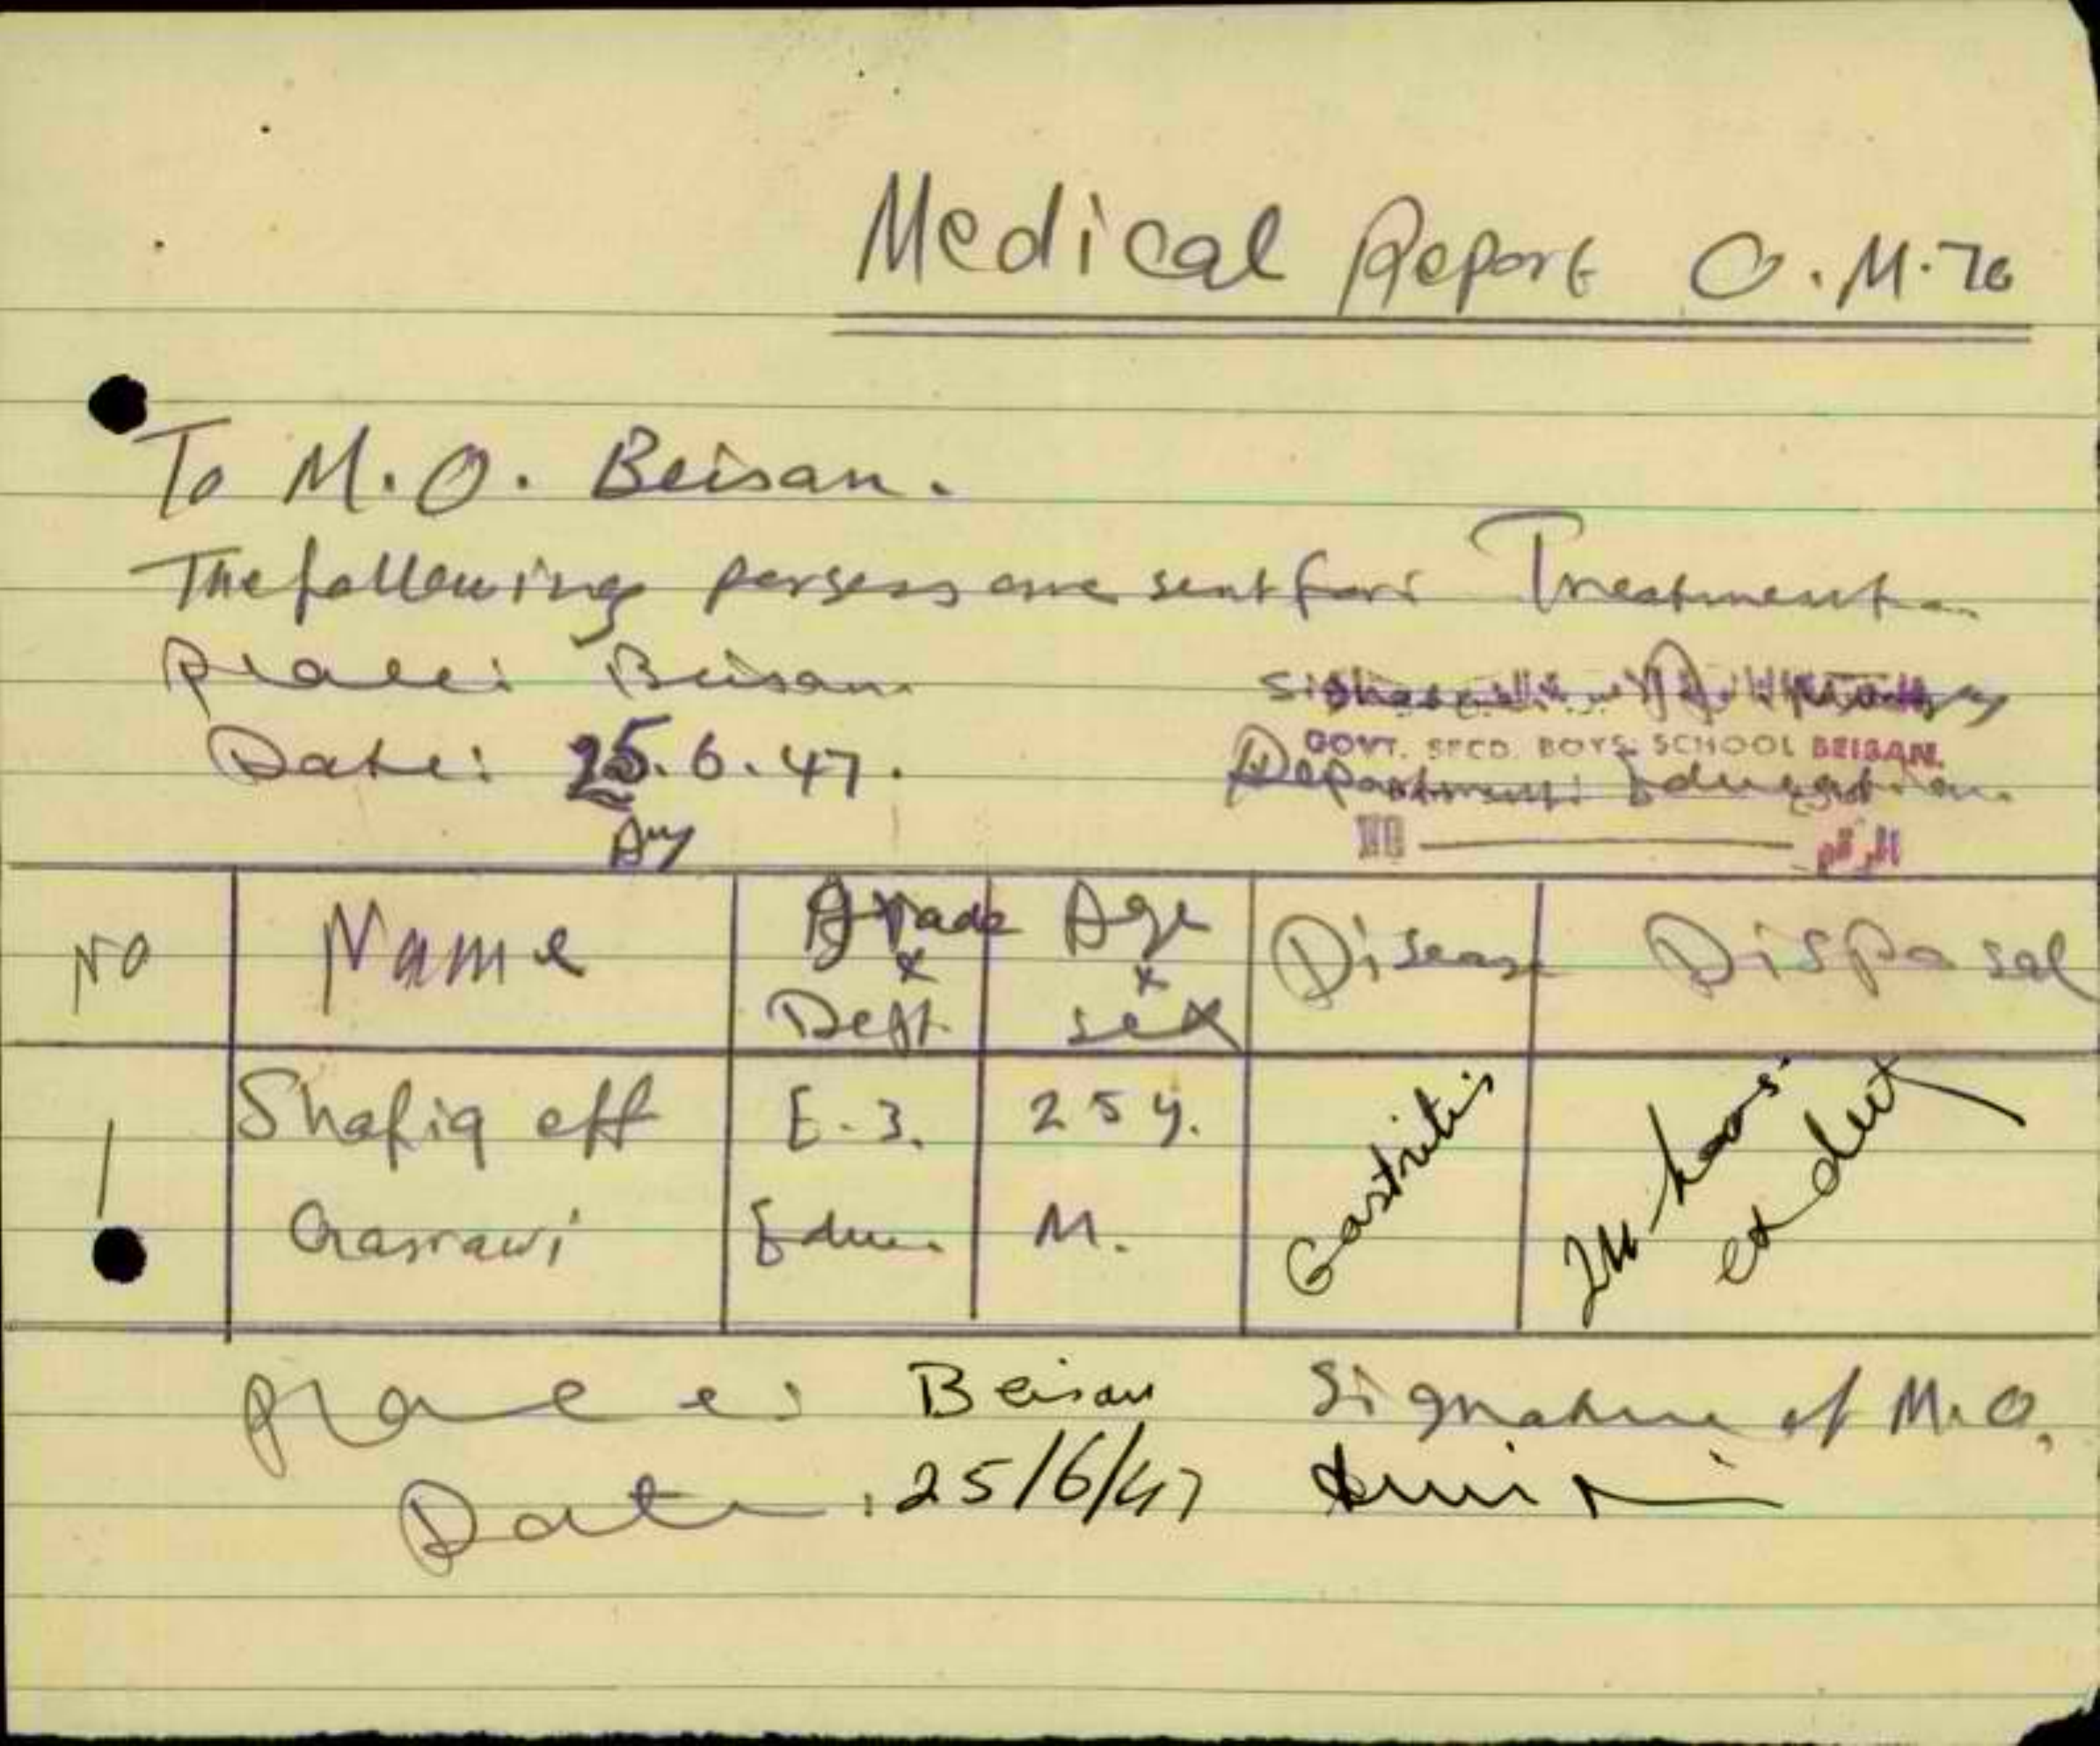 Medical Report O.M.70
To M.O. Beisan.
The following persons are sent for: Treatment
place: Beisan
Date: 25.6.47.
GOVT. SECD. BOYS. SCHOOL BEISAN.
Department: Education
NO الرقم
NO Name Grade x Dept. Age x sex Disease Disposal
1 Shafiq eff E.3. 25 y. Gastritis 24 hours
Edu. M. ex duty
place: Beisan Signature of M.O.
Date: 25/6/47